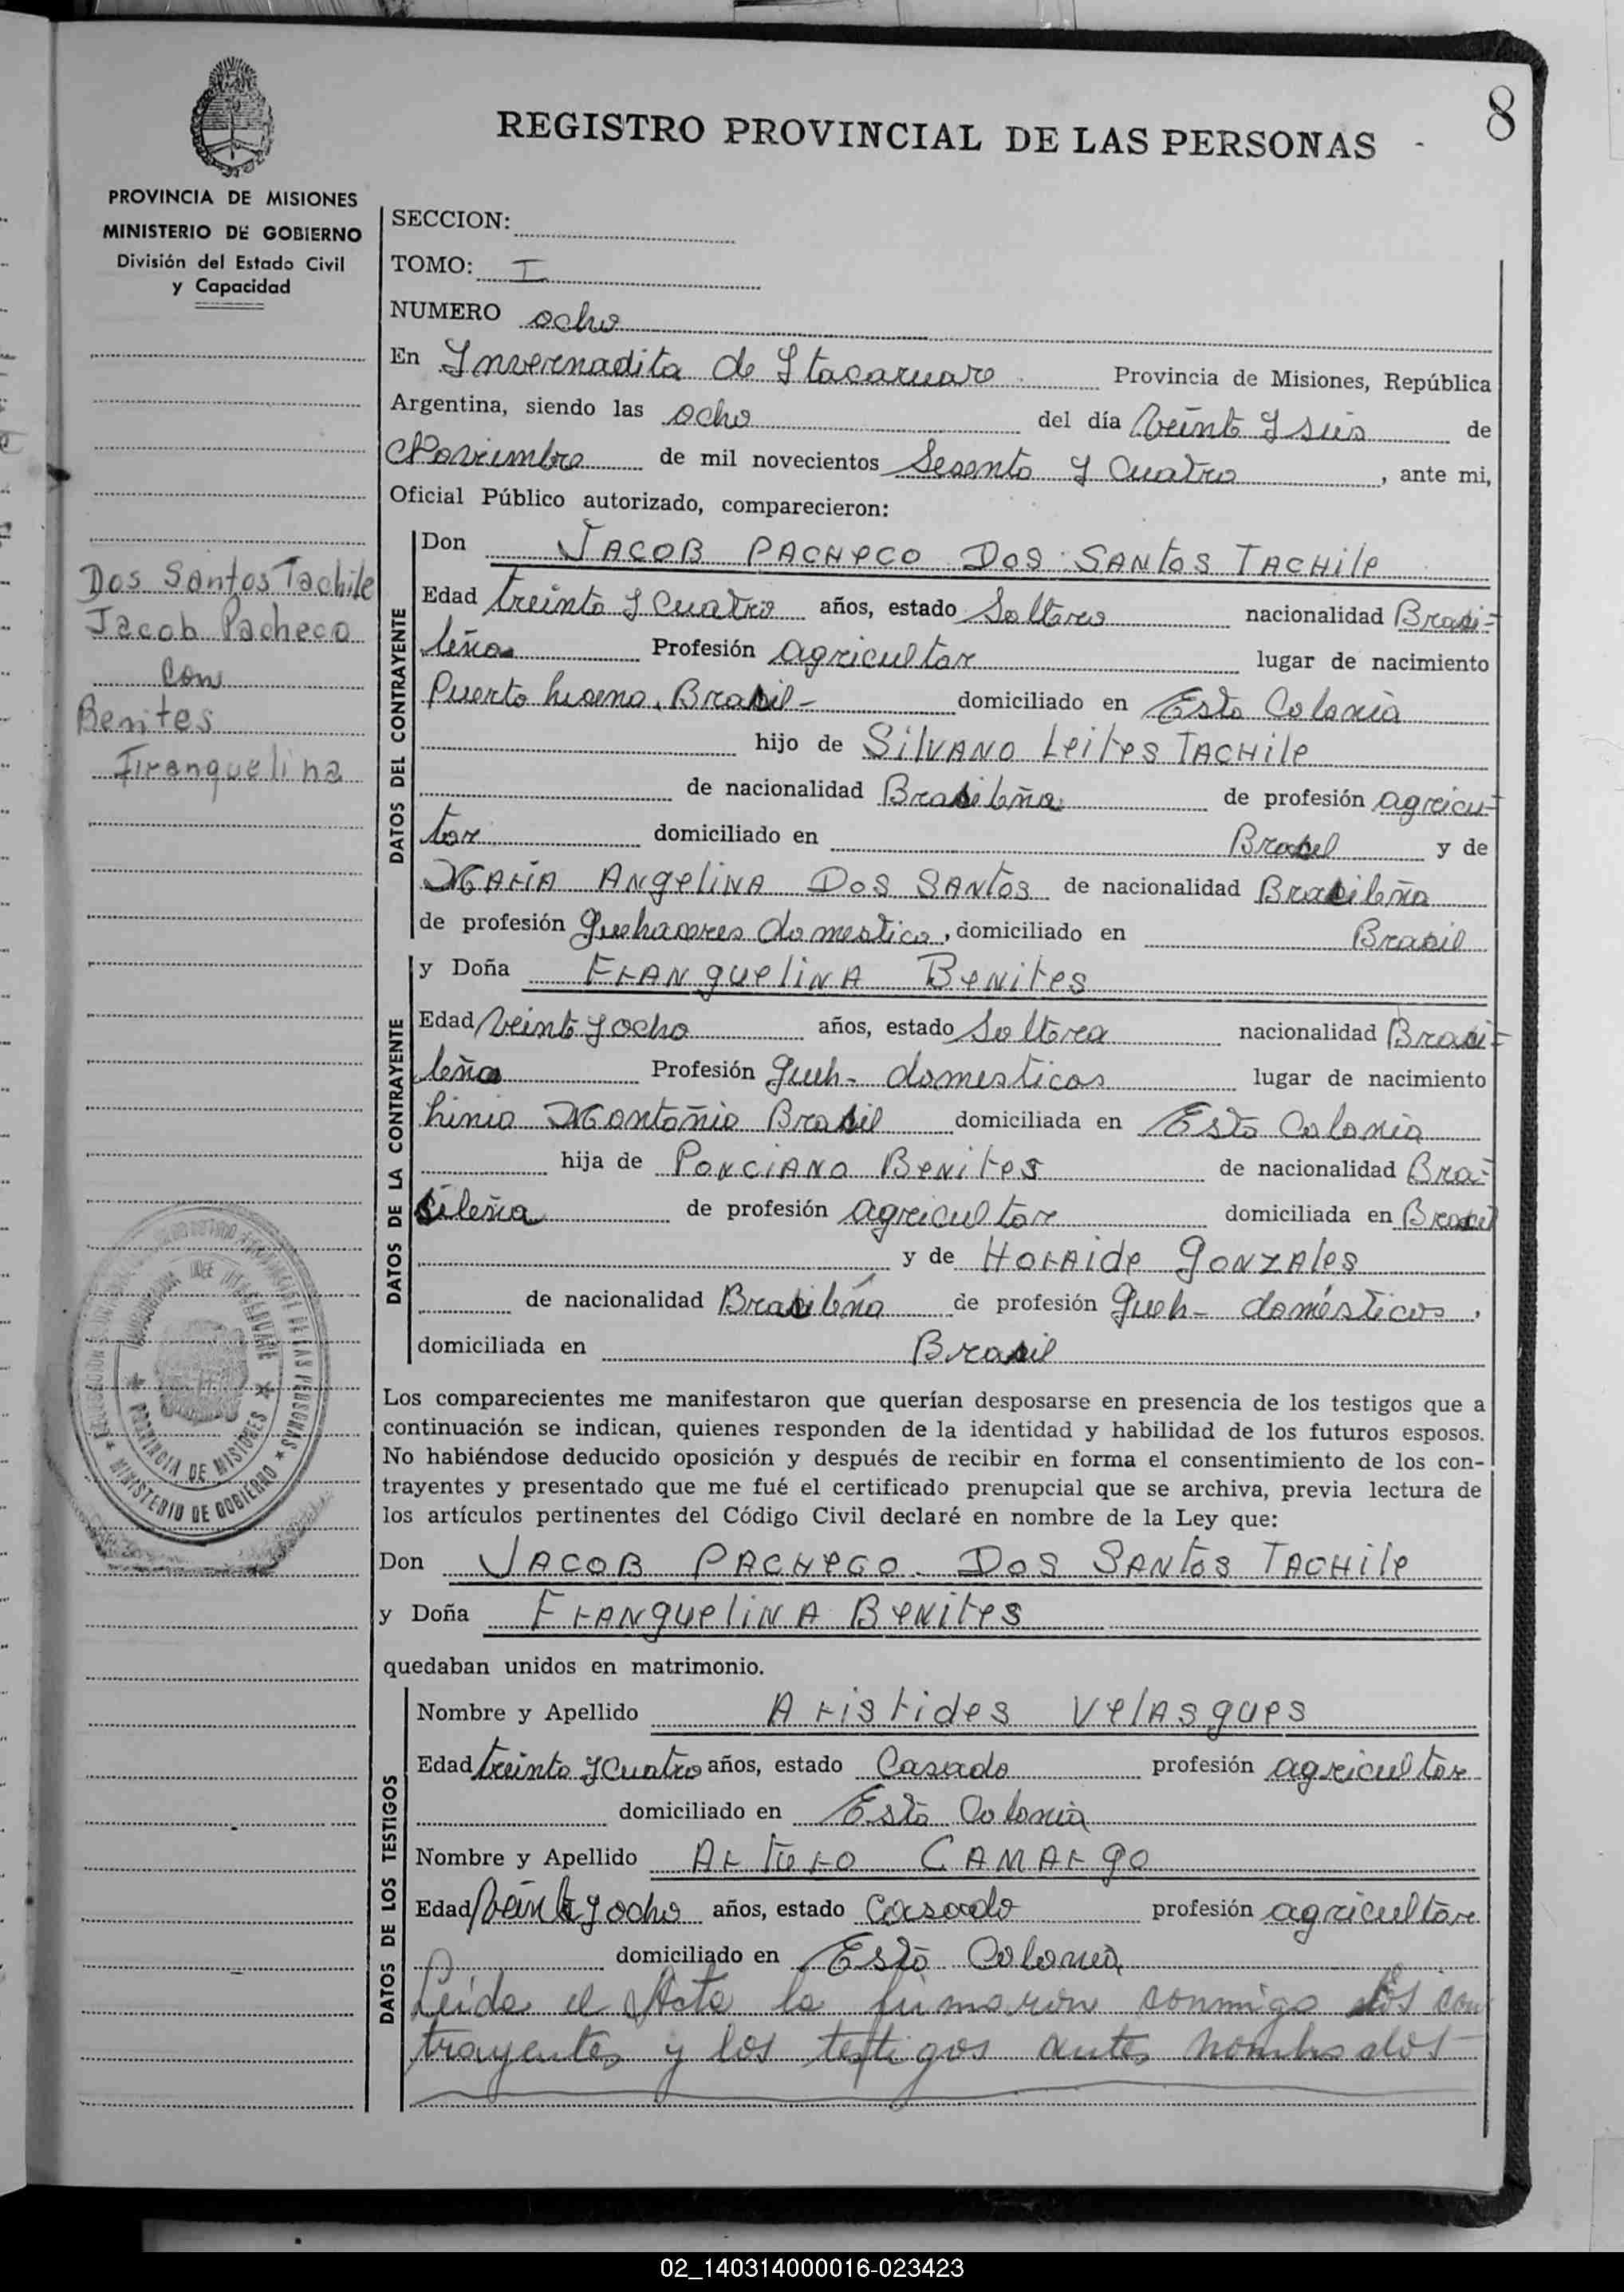 8
REGISTRO PROVINCIAL DE LAS PERSONAS
PROVINCIA DE MISIONES
MINISTERIO DE GOBIERNO
División del Estado Civil
y Capacidad
Dos Santos Tachile
Jacob Pacheco
con
Benites
Franquelina
SECCION:
TOMO: I
NUMERO ocho
En Invernadita de Itacaruare Provincia de Misiones, República
Argentina, siendo las ocho del día Veinte y seis de
Noviembre de mil novecientos Sesenta y Cuatro, ante mi,
Oficial Público autorizado, comparecieron:
DATOS DEL CONTRAYENTE
Don JACOB PACHECO DOS SANTOS TACHILE
Edad treinta y Cuatro años, estado Soltero nacionalidad Brasi-
leña Profesión agricultor lugar de nacimiento
Puerto Brasil- domiciliado en Esta Colonia
hijo de SILVANO LEITES TACHILE
de nacionalidad Brasileña de profesión agricul-
tor domiciliado en Brasil y de
MARIA ANGELINA DOS SANTOS de nacionalidad Brasileña
de profesión Quehaceres domestico, domiciliado en Brasil
DATOS DE LA CONTRAYENTE
y Doña FRANQUELINA BENITES
Edad Veinte y ocho años, estado Soltera nacionalidad Brasi-
leña Profesión Queh- domesticos lugar de nacimiento
Brasil domiciliada en Esta Colonia
hija de PONCIANO BENITES de nacionalidad Bra-
sileña de profesión agricultor domiciliada en Brasil
y de HORAIDE GONZALES
de nacionalidad Brasileña de profesión Queh- domésticos,
domiciliada en Brasil
Los comparecientes me manifestaron que querían desposarse en presencia de los testigos que a
continuación se indican, quienes responden de la identidad y habilidad de los futuros esposos.
No habiéndose deducido oposición y después de recibir en forma el consentimiento de los con-
trayentes y presentado que me fué el certificado prenupcial que se archiva, previa lectura de
los artículos pertinentes del Código Civil declaré en nombre de la Ley que:
Don JACOB PACHECO DOS SANTOS TACHILE
y Doña FRANQUELINA BENITES
quedaban unidos en matrimonio.
DATOS DE LOS TESTIGOS
Nombre y Apellido ARISTIDES VELASQUES
Edad treinta y Cuatro años, estado Casado profesión agricultor
domiciliado en Esta Colonia
Nombre y Apellido ARTURO CAMARGO
Edad Veinte y ocho años, estado Casado profesión agricultor
domiciliado en Esta Colonia
Leida el Acta la firmaron conmigo los con
trayentes y los testigos antes nombrados
REGISTRO PROVINCIAL DE LAS PERSONAS
MINISTERIO DE GOBIERNO
PROVINCIA DE MISIONES
02_140314000016-023423